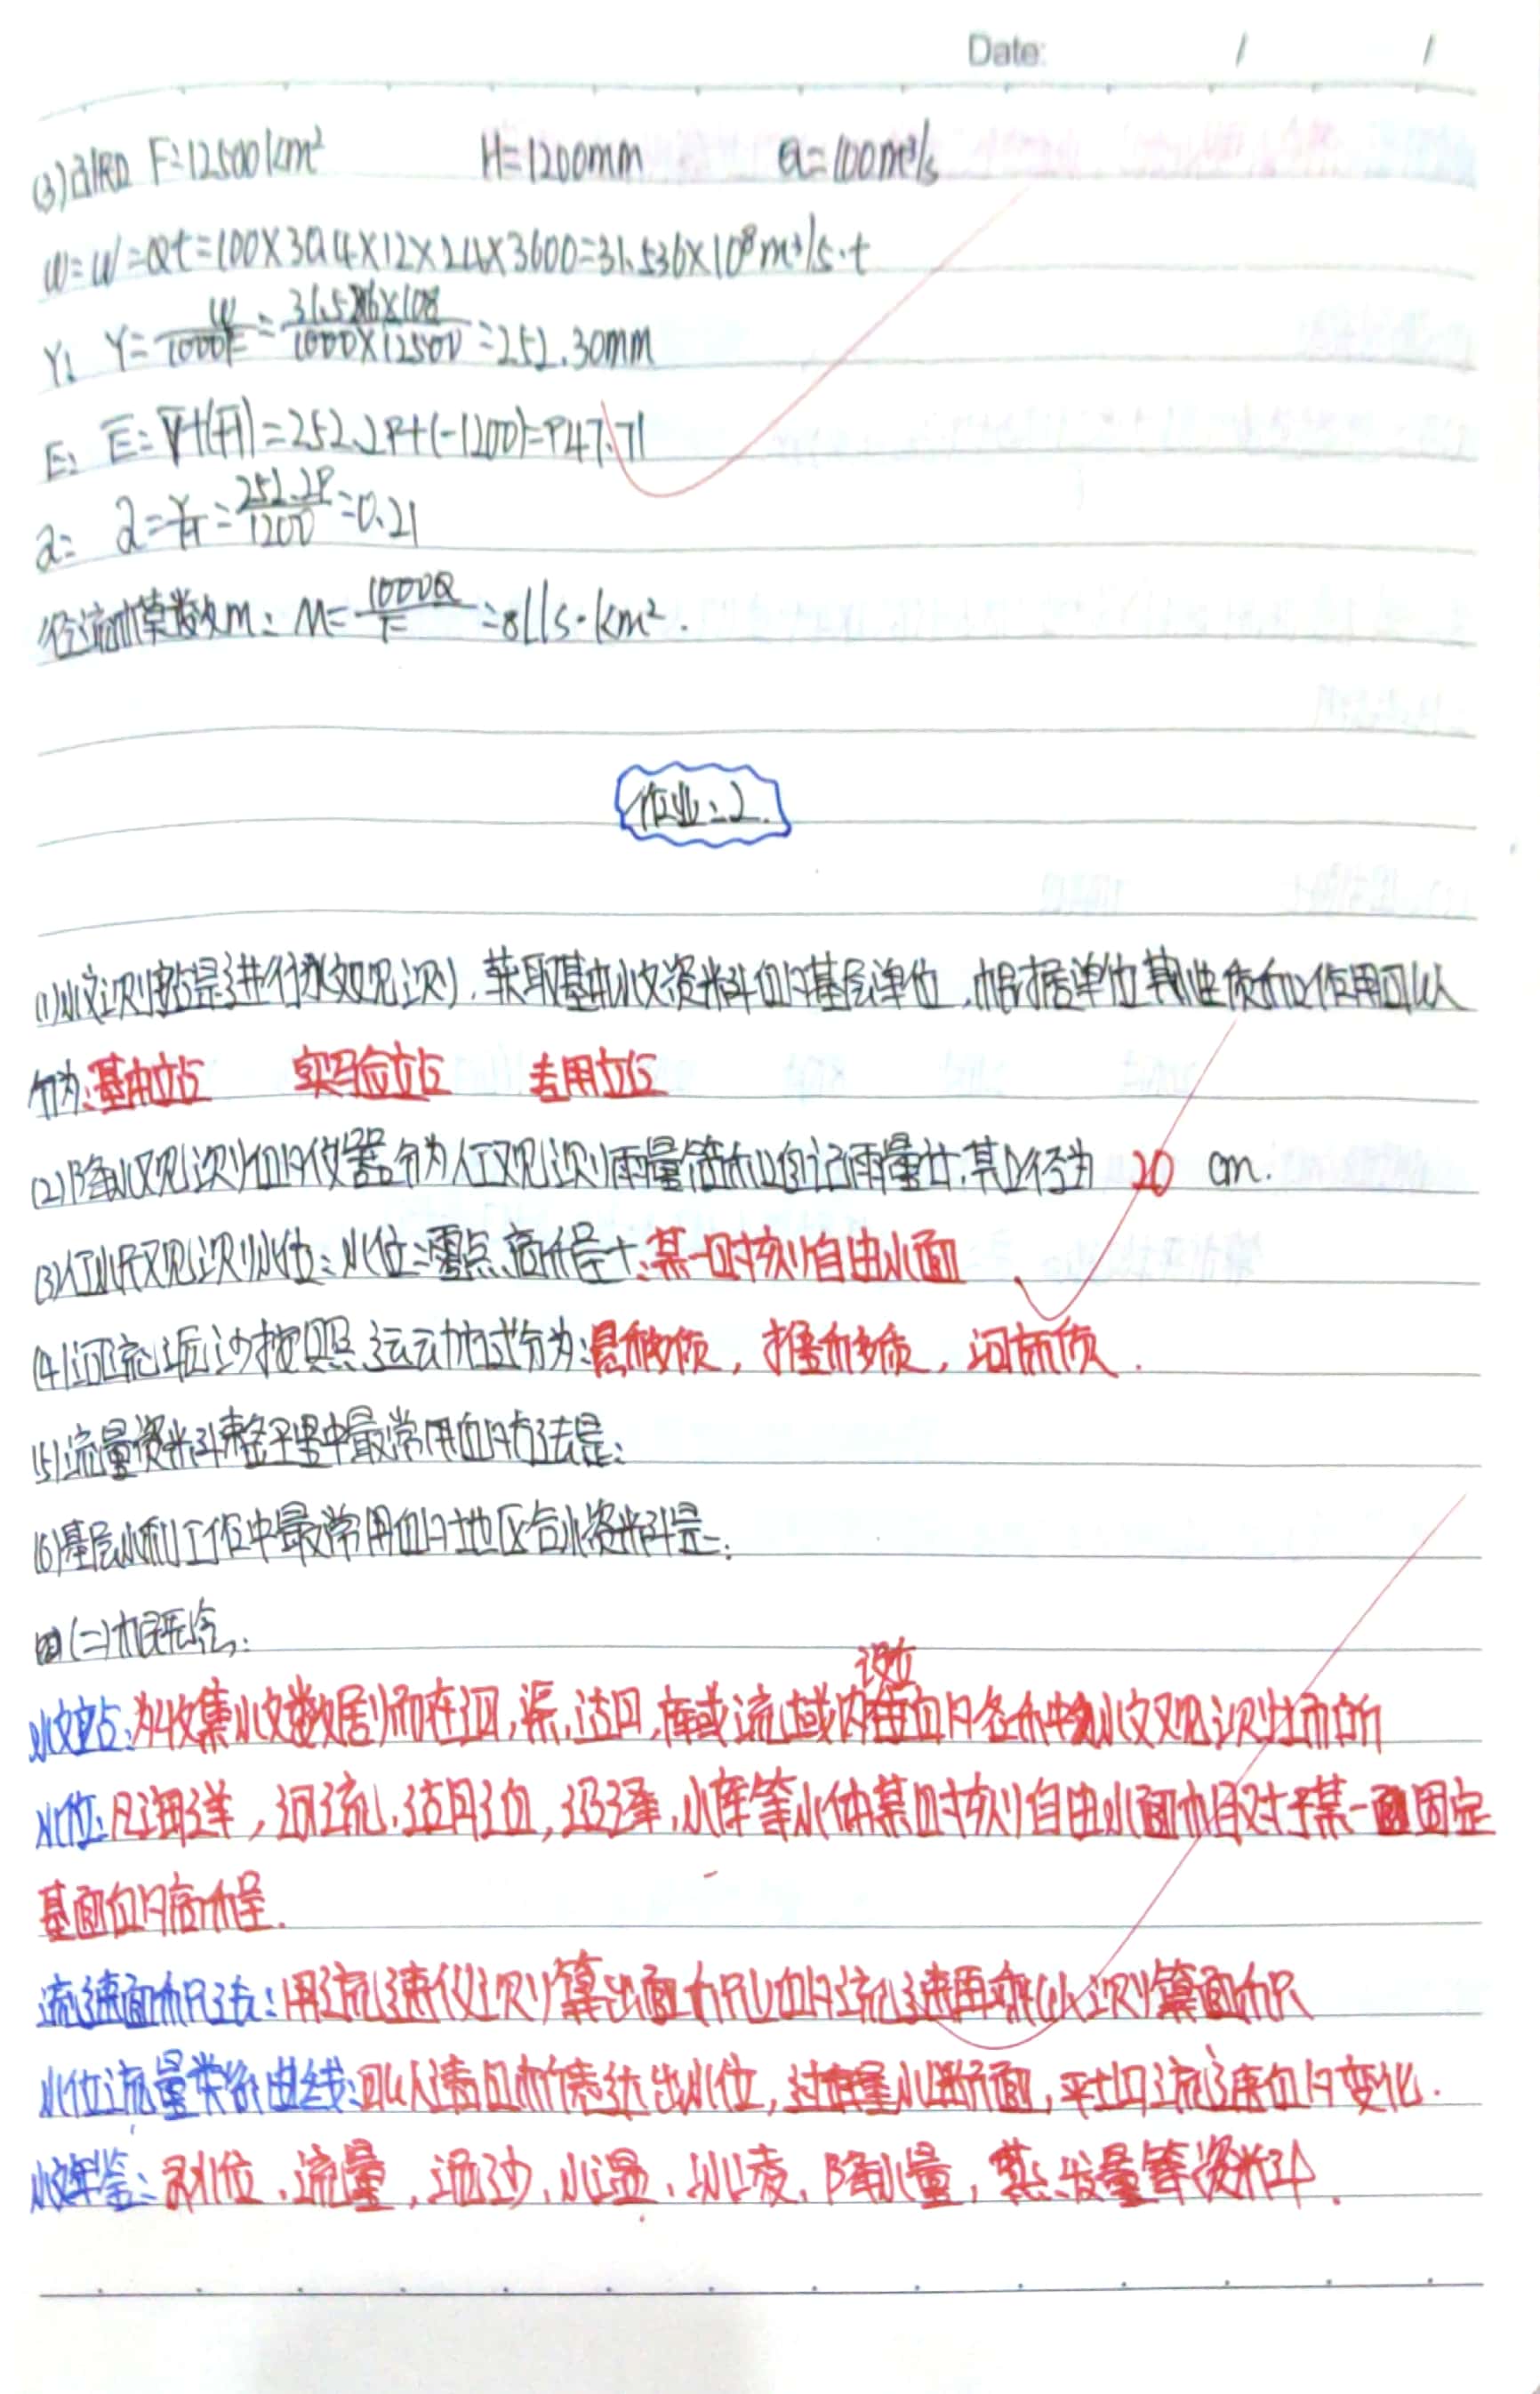 Date: / /
(3)已知 F=12500km² H=1200mm Q=100m³/s
W= W=Qt=100×30.4×12×24×3600=31.536×10⁸m³/s·t
Y: Y=W/1000F=31.536×108/1000×12500=252.30mm
E: E=Y+(-H)=252.29+(-1200)=947.71
α= α=Y/H=252.29/1200=0.21
径流模数M: M=1000Q/F=8L/s·km².
作业:2.
(1)水文测站是进行水文观测,获取基本水文资料的基层单位,根据单位其性质和作用可以
分为:基本站 实验站 专用站
(2)降水观测的仪器分为人工观测雨量筒和自记雨量计,其口径为 20 cm.
(3)人工水尺观测水位:水位=零点高程+:某一时刻自由水面
(4)河流泥沙按照运动方式分为:悬移质,推移质,河床质.
(5)流量资料整理中最常用的方法是:
(6)基层水利工作中最常用的地区台水资料是:
(二)概念:
水文站:为收集水文数据而在河,渠,湖,库或流域内设立的各种水文观测场所
水位:凡海洋,河流,湖泊,沼泽,水库等水体某时刻自由水面相对于某一固定
基面的高程.
流速面积法:用流速仪测算出面积的流速再乘以测算面积
水位流量关系曲线:可以清晰表达出水位,过水断面,平均流速的变化.
水文年鉴:录水位、流量,泥沙,水温、冰凌、降水量,蒸发量等资料.